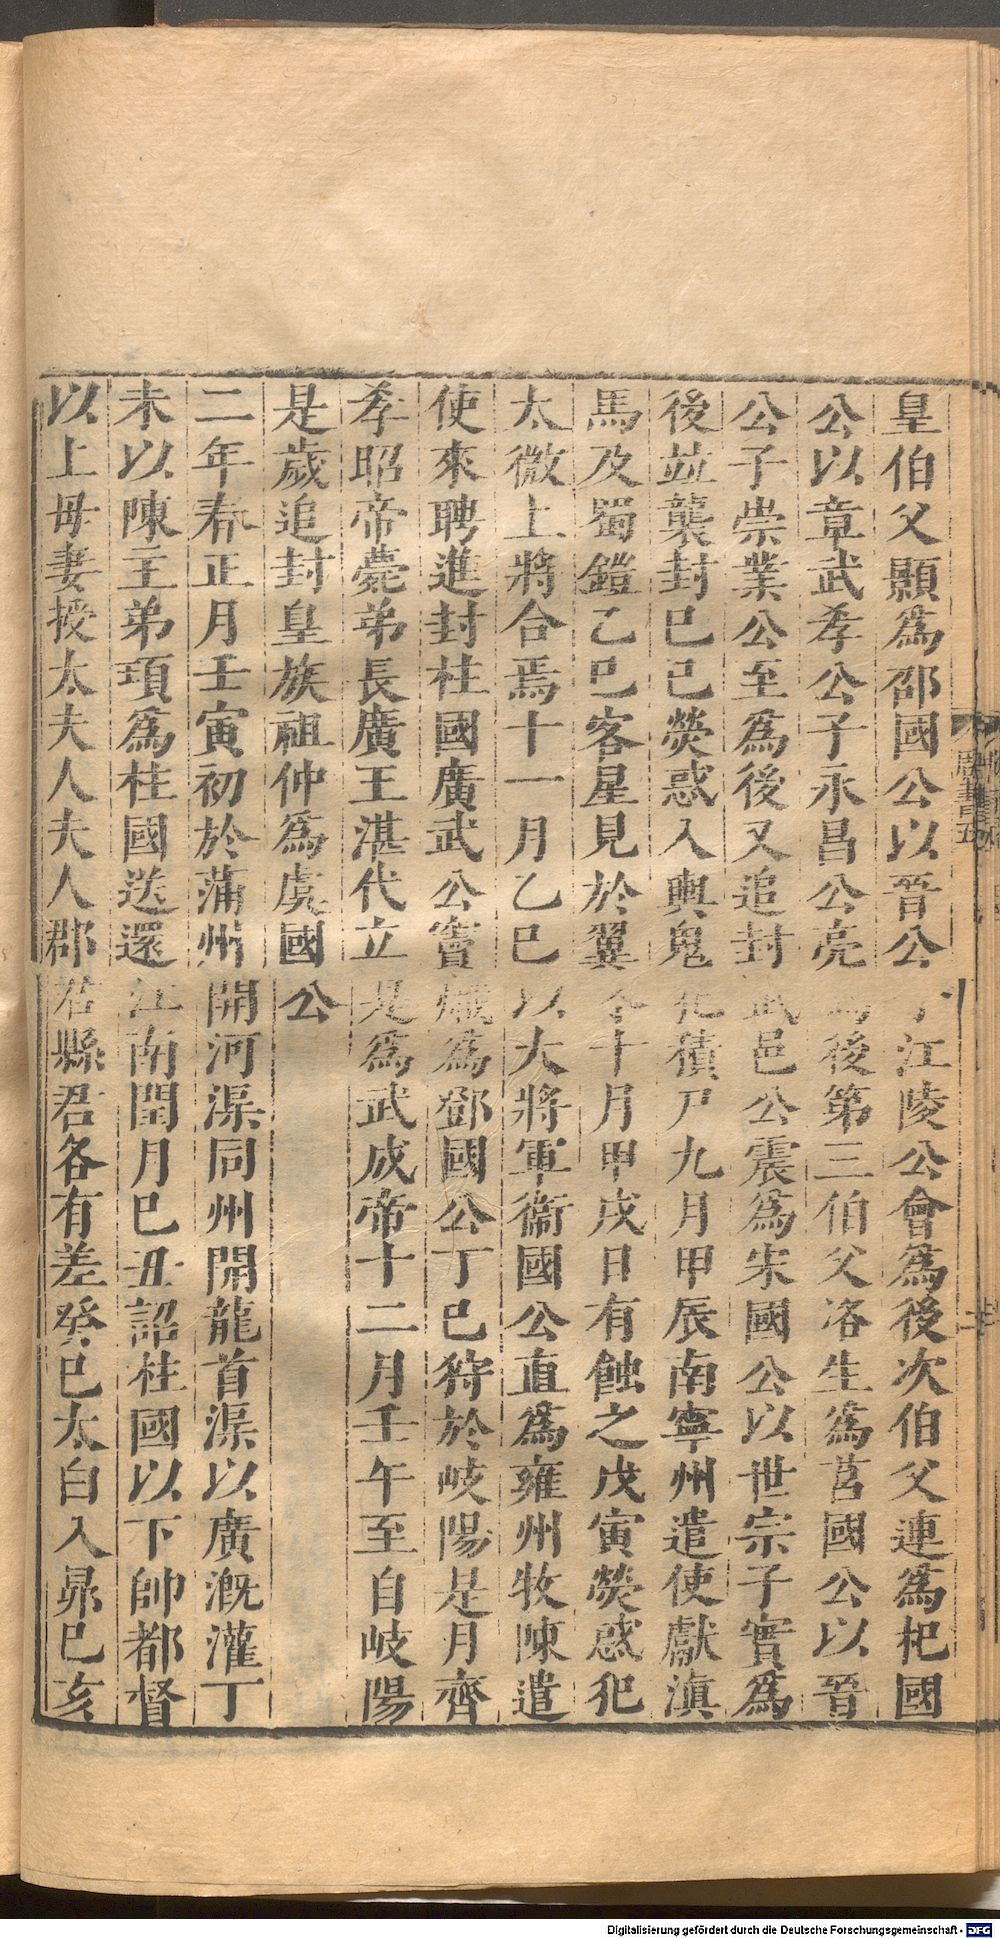 皇伯父顯爲邵國公以晉公子江陵公會爲後次伯父連爲杞國
公以章武孝公子永昌公亮爲後第三伯父洛生爲莒國公以晉
公子崇業公至爲後又追封武邑公震爲宋國公以世宗子實爲
後並襲封巳巳熒惑入輿鬼犯積尸九月甲辰南寧州遣使獻滇
馬及蜀鎧乙巳客星見於翼冬十月甲戌日有蝕之戊寅熒惑犯
太微上將合焉十一月乙巳以大將軍衞國公直爲雍州牧陳遣
使來聘進封柱國廣武公竇熾爲鄧國公丁巳狩於岐陽是月齊
孝昭帝薨弟長廣王湛代立是爲武成帝十二月壬午至自岐陽
是歲追封皇族祖仲爲虞國公
二年春正月壬寅初於蒲州開河渠同州開龍首渠以廣溉灌丁
未以陳主弟項爲柱國送還江南閏月巳丑詔柱國以下帥都督
以上母妻授太夫人夫人郡君縣君各有差癸巳太白入昴巳亥
Digitalisierung gefördert durch die Deutsche Forschungsgemeinschaft - DFG